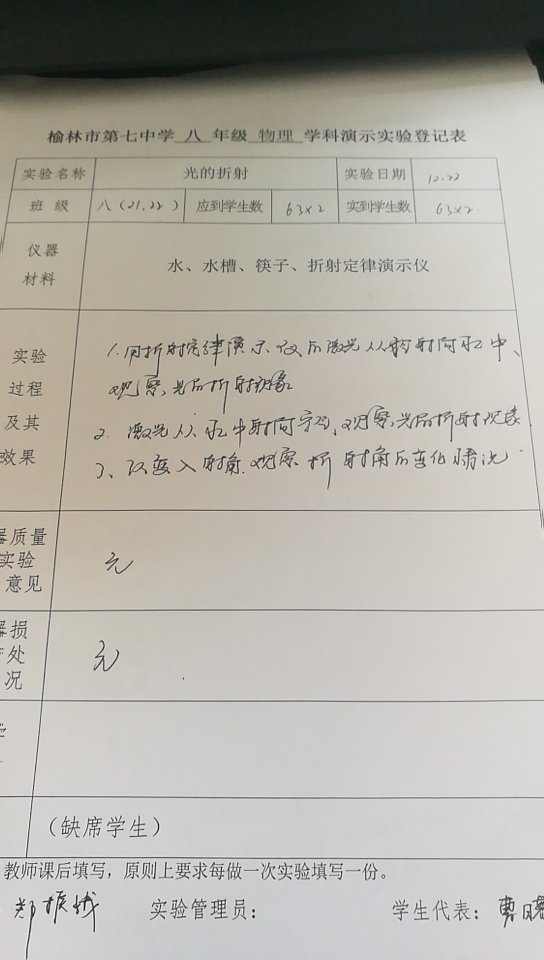 榆林市第七中学 八 年级 物理 学科演示实验登记表
实验名称 光的折射 实验日期 12.22
班 级 八（21.22） 应到学生数 63×2 实到学生数 63×2
仪器
材料
水、水槽、筷子、折射定律演示仪
实验
过程
及其
效果
1.用折射定律演示仪的激光从 射向水中、
观察光的折射现象
2. 激光从水中射向空气、观察光的折射现象
3、改变入射角.观察折射角的变化情况.
器质量
实验
意见
无
器损
处
况
无
学
（缺席学生）
教师课后填写，原则上要求每做一次实验填写一份。
郑振 实验管理员： 学生代表：曹